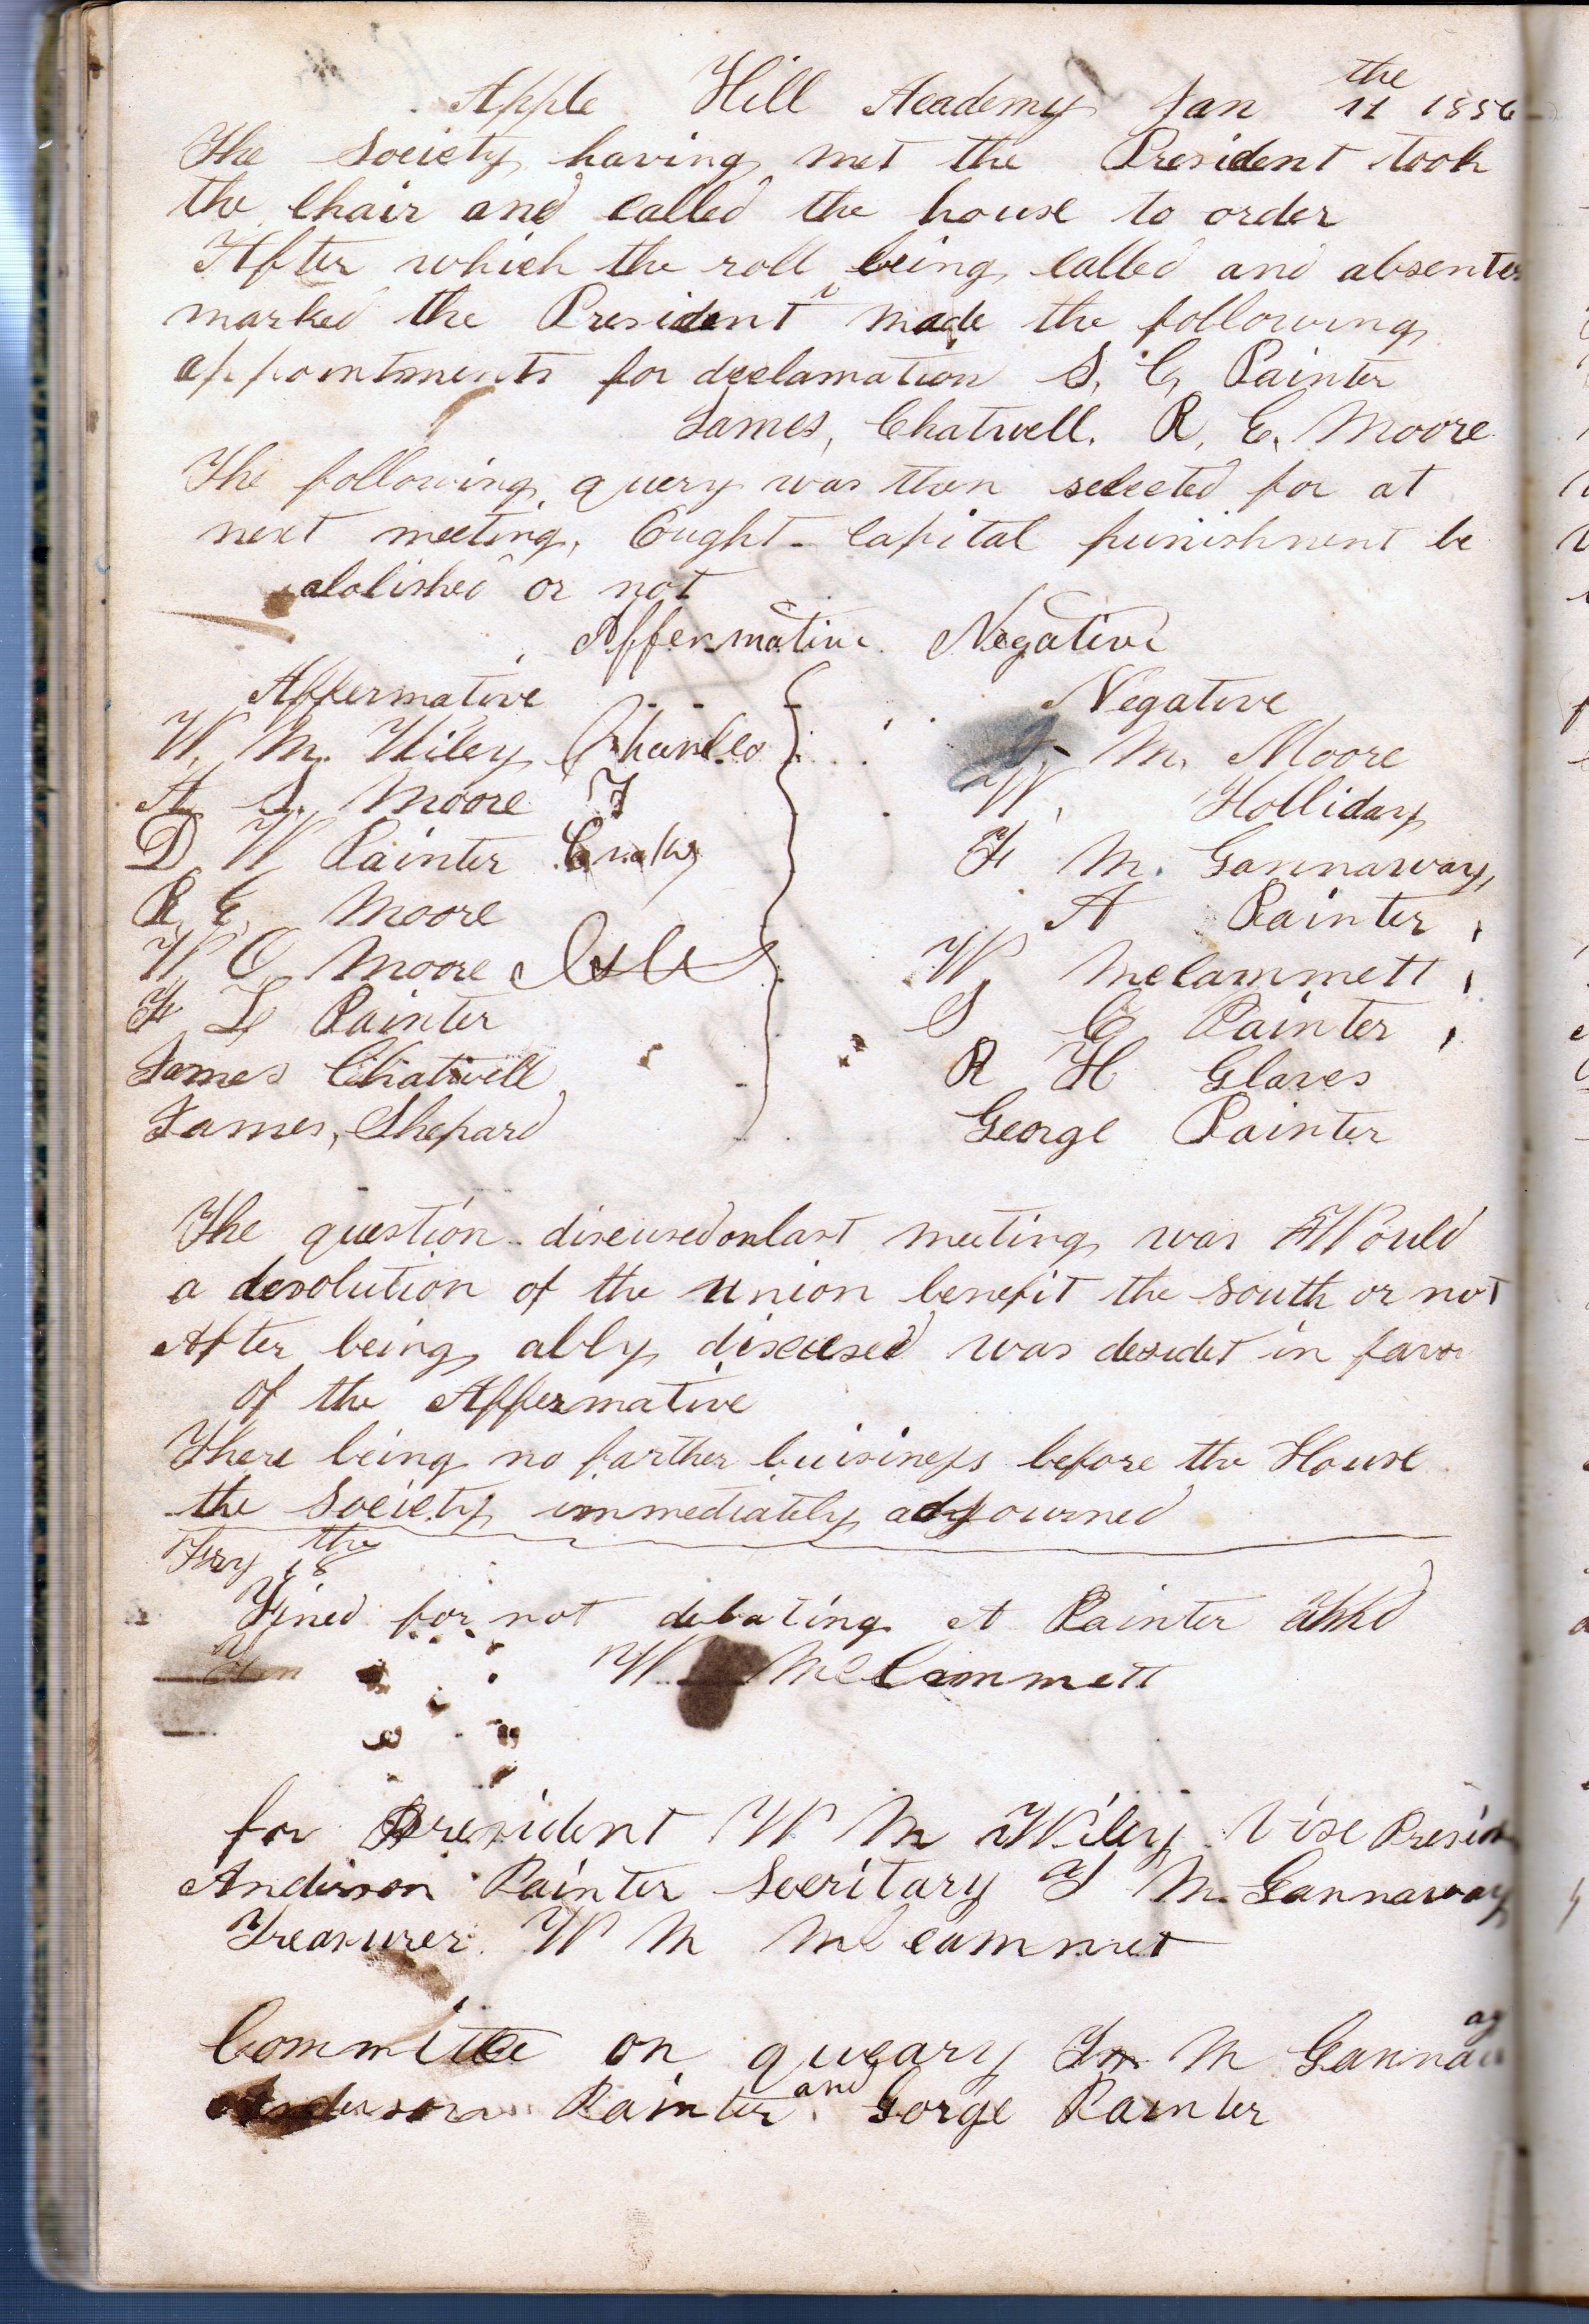 Apple Hill Academy Jan 11 the 1856
The Society having met the President took
the Chair and called the house to order
After which the roll being called and absentes
marked the President made the following
appointments for declamation S, C, Painter
James, Chatwell. R, E, Moore
The following query was then selected for at
next meeting, Ought capital punishment be
abolished or not
Affermative Negative
Affermative Negative
W, M. Wiley Charles M. Moore
A S. Moore W, Holliday
D W Painter F M. Gannaway,
R, E, Moore A Painter,
W O Moore W, Mccammett,
F L Painter S C Painter,
James Chatwell R H Glaves
James, Shepard George Painter
The question discused on last meeting was Would
a desolution of the union benefit the south or not
After being ably discused was desidet in favor
of the Affermative
There being no farther buisiness before the House
the Society immediately adjourned
the 18
Fined for not debating A Painter
W McCammett
for President W M Wiley Vise Presid
Anderson Painter Secritary F M. Gannaway
Treasurer. W M McCammet
Committee on queary M Gannaway
Anderson Painter and Gorge Painter